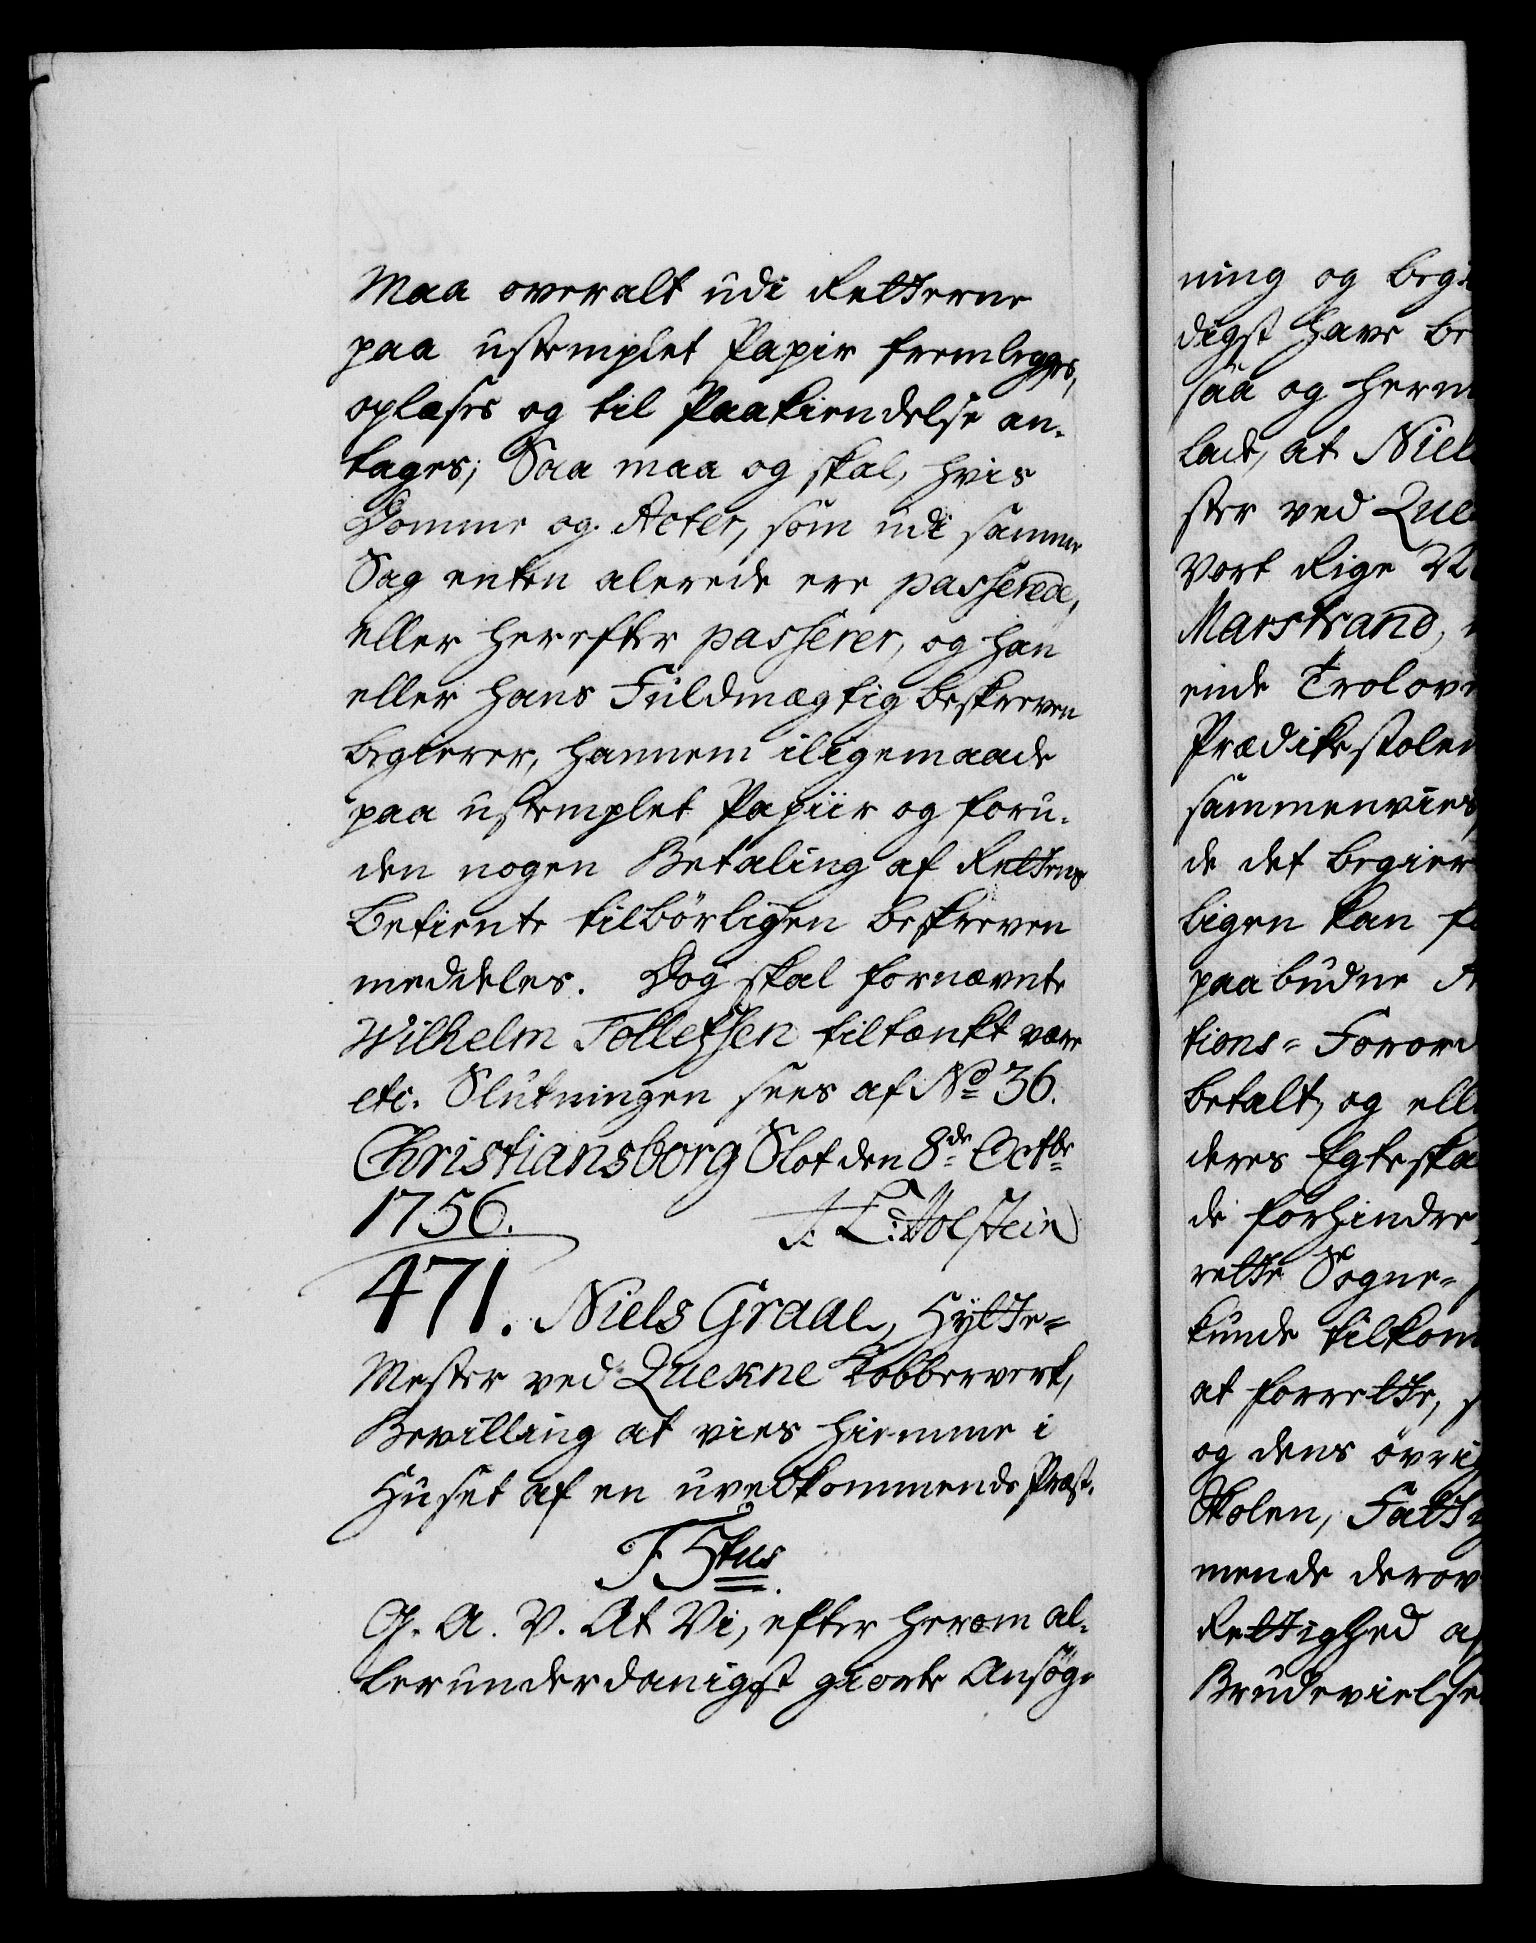 Maa overalt udi Retterne
paa ustemplet Papir fremlegges,
oplæses og til Paakiendelse an-
tages; Saa maa og skal, hvis
Domme og Acter, som udi samme
Sag enten alerede ere passerede,
eller herefter passerer, og han
eller hans Fuldmægtig beskreven
begierer, hannem iligemaade
paa ustemplet Papiir og foru-
den nogen Betaling af Rettens
Betiente tilbørligen beskreven
meddeles. Dog skal fornævnte
Wilhelm Tollefsen tiltænkt være
etc. Slutningen sees af No 36.
Christiansborg Slot den 8de Octbr
1756. J. L. Holstein
471. Niels Graae, Hytte=
Mester ved Quekne Kobberverk,
Bevilling at vies hiemme i
Huset af en uvedkommende Præst.
F 5tus
G. A. V. At Vi, efter herom al-
lerunderdanigst giorte Ansøg-
ning og begi
digst have be
saa og herm
lade, at Niel
ster ved Que
Vort Rige N
Marstrand,
eende Trolov
Prædikestolen
sammenvies,
de det begier
ligen kan f
paabudne
tions= Foror
betalt, og ell
deres Egteska
de forhindre,
rette Sogne=
kunde tilkom
at forrette,
og dens øvrig
Skolen, Fatt
mende derov
Rettighed af
Brudevielse